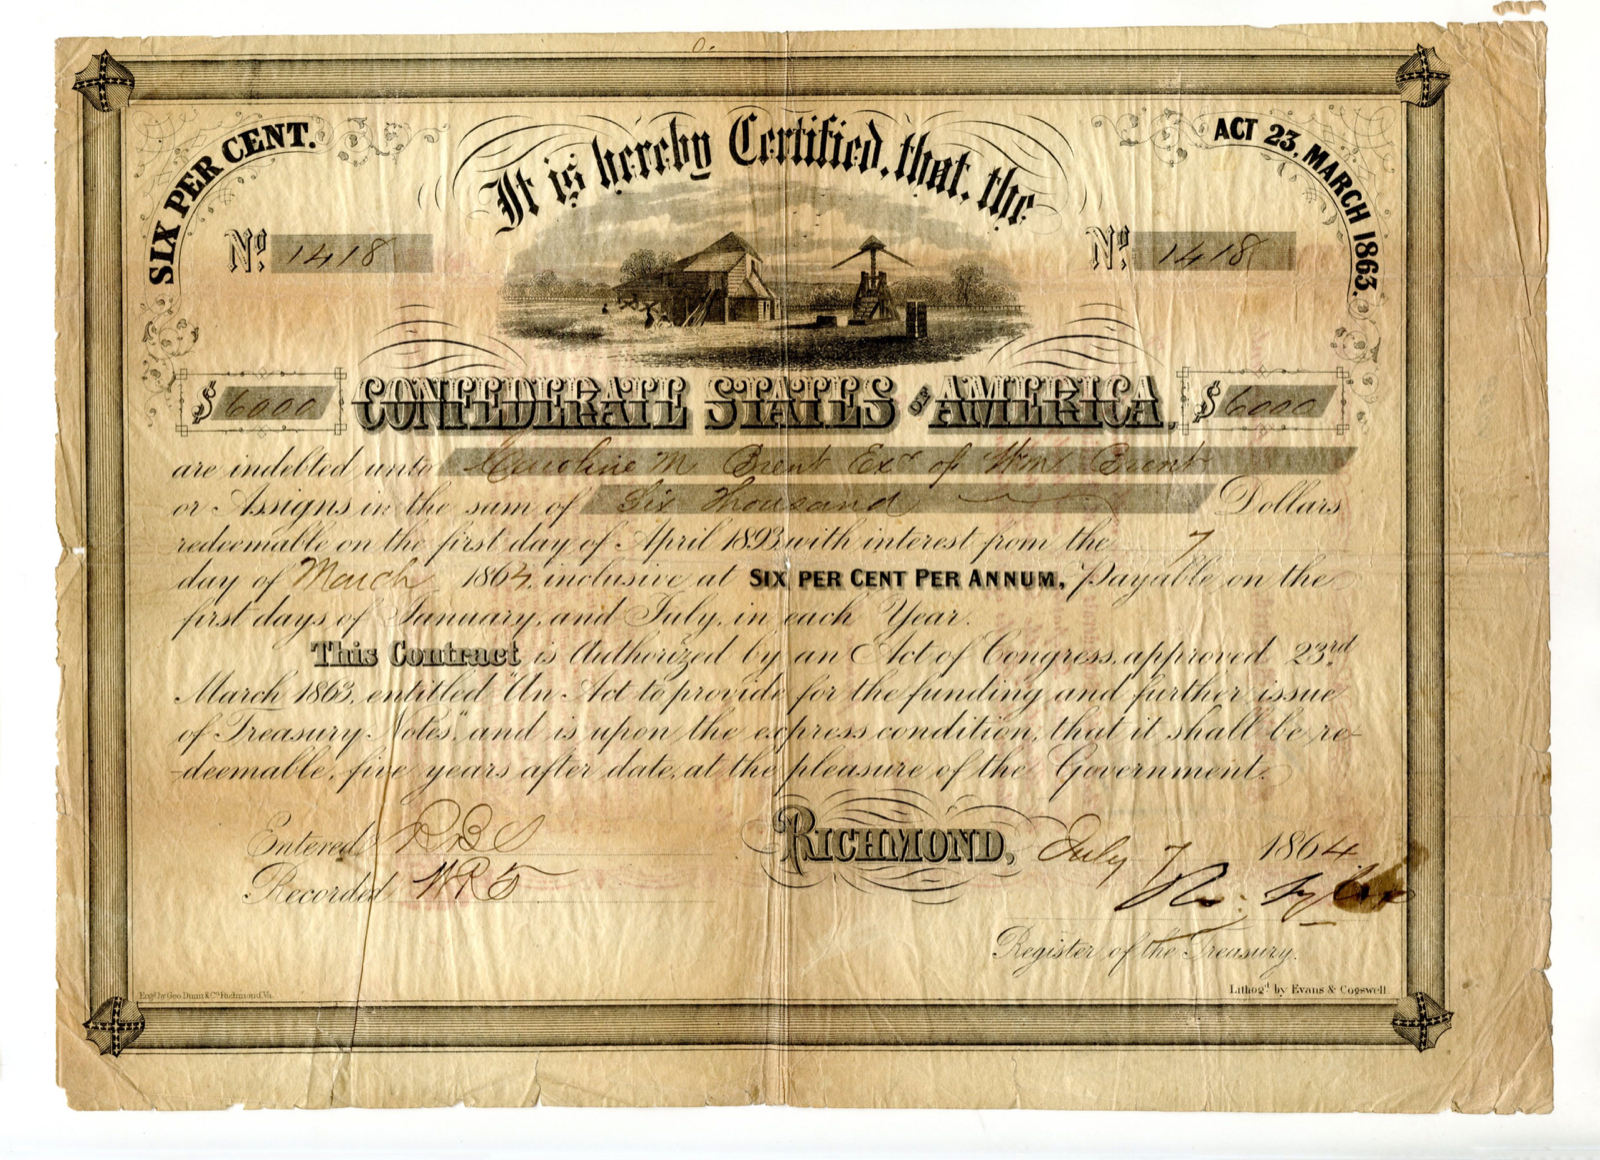 SIX PER CENT.
It is hereby Certified, that, the
ACT 23, MARCH 1863.
No. 1418
No. 1418
$ 6000
CONFEDERATE STATES OF AMERICA,
$ 6000
are indebted unto Caroline M Brent Exx of Wm Brent
or Assigns in the sum of Six Thousand Dollars
redeemable on the first day of April 1893 with interest from the 7
day of March 1864, inclusive at SIX PER CENT PER ANNUM, Payable on the
first days of January, and July, in each Year.
This Contract is Authorized by an Act of Congress, approved 23rd
March 1863, entitled "An Act to provide for the funding and further issue
of Treasury Notes", and is upon the express condition, that it shall be re-
-deemable, five years after date, at the pleasure of the Government.
Entered
Recorded
RICHMOND, July 7 1864
Ro: Tyler
Register of the Treasury.
Engd by Geo Dunn & Co Richmond Va.
Lithogd by Evans & Cogswell